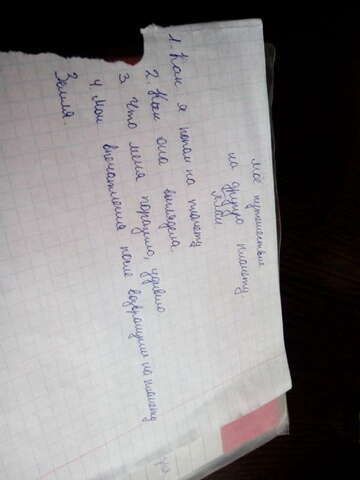 Моё путешествие
на другую планету
1. Как я попал на планету
2. Как она выглядела.
3. Что меня поразило, удивило
4. Мои впечатления после возвращения на планету
Земля.